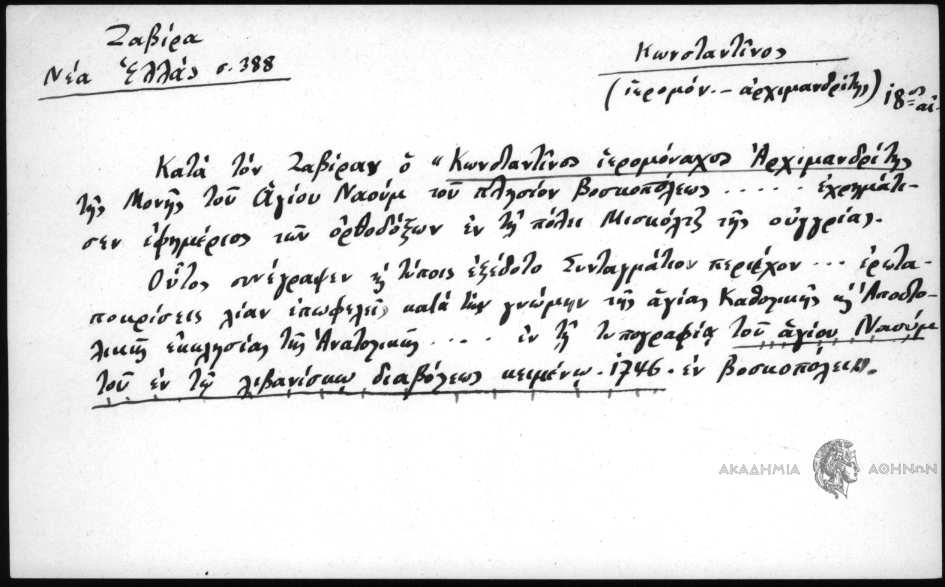 Ζαβίρα
Νέα Ἑλλάς σ. 388
Κωνσταντῖνος
(ἱερομόν. – ἀρχιμανδρίτης) 18ος αἰ.
Κατὰ τὸν Ζαβίραν ὁ "Κωνσταντῖνος ἱερομόναχος Ἀρχιμανδρίτης
τῆς Μονῆς τοῦ Ἁγίου Ναοὺμ τοῦ πλησίον Βοσκοπόλεως ..... ἐχρημάτι-
σεν ἐφημέριος τῶν ὀρθοδόξων ἐν τῇ πόλει Μισκόλτζ τῆς οὐγγρίας.
Οὗτος συνέγραψεν ϗ τύποις ἐξέδοτο Συνταγμάτιον περιέχον ... ἐρωτα-
ποκρίσεις λίαν ἐπωφελεῖς κατὰ τὴν γνώμην τῆς ἁγίας Καθολικῆς ϗ Ἀποστο-
λικῆς ἐκκλησίας τῆς Ἀνατολικῆς .... ἐν τῇ τυπογραφίᾳ τοῦ ἁγίου Ναοὺμ
τοῦ ἐν τῷ λιβανίσκῳ διαβόλεως κειμένῳ. 1746. ἐν Βοσκοπόλει".
ΑΚΑΔΗΜΙΑ ΑΘΗΝΩΝ